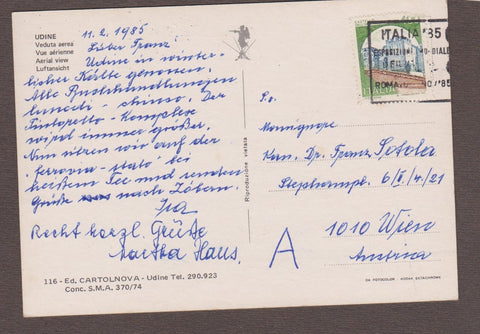 UDINE
Veduta aerea
Vue aérienne
Aerial view
Luftansicht
11. 2. 1985
Lieber Franz!
Udine in winter-
licher Kälte genossen.
Alle Buchhandlungen
lunedi - chiuso. Der
Tintoretto - Komplex
wird immer größer.
Nun sitzen wir auf der
"ferrovia - stato" bei
heißem Tee und senden
Grüße nach
Recht herzl. Grüße
Martha Haus.
116 - Ed. CARTOLNOVA - Udine Tel. 290.923
Conc. S.M.A. 370/74
Riproduzione vietata
ITALIA '85
ROMA
Monsignore
Kan. Dr. Franz
Stephanspl. 6/II/4./21
1010 Wien
Austria
A
DA FOTOCOLOR - KODAK EKTACHROME